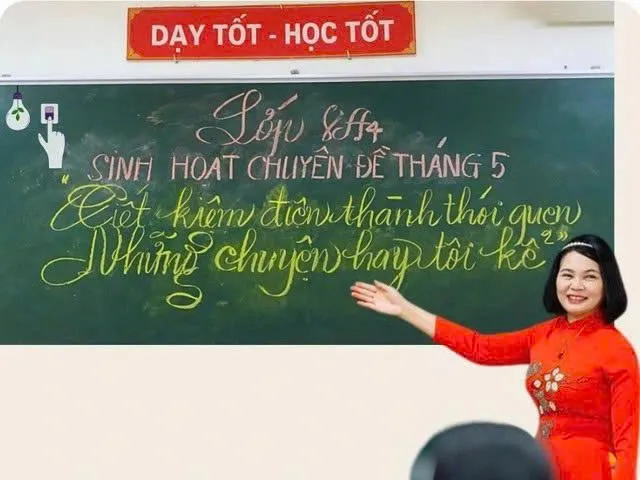 DẠY TỐT - HỌC TỐT
Lớp 8A4
SINH HOẠT CHUYÊN ĐỀ THÁNG 5
"Tiết kiệm điện thành thói quen
Những chuyện hay tôi kể"